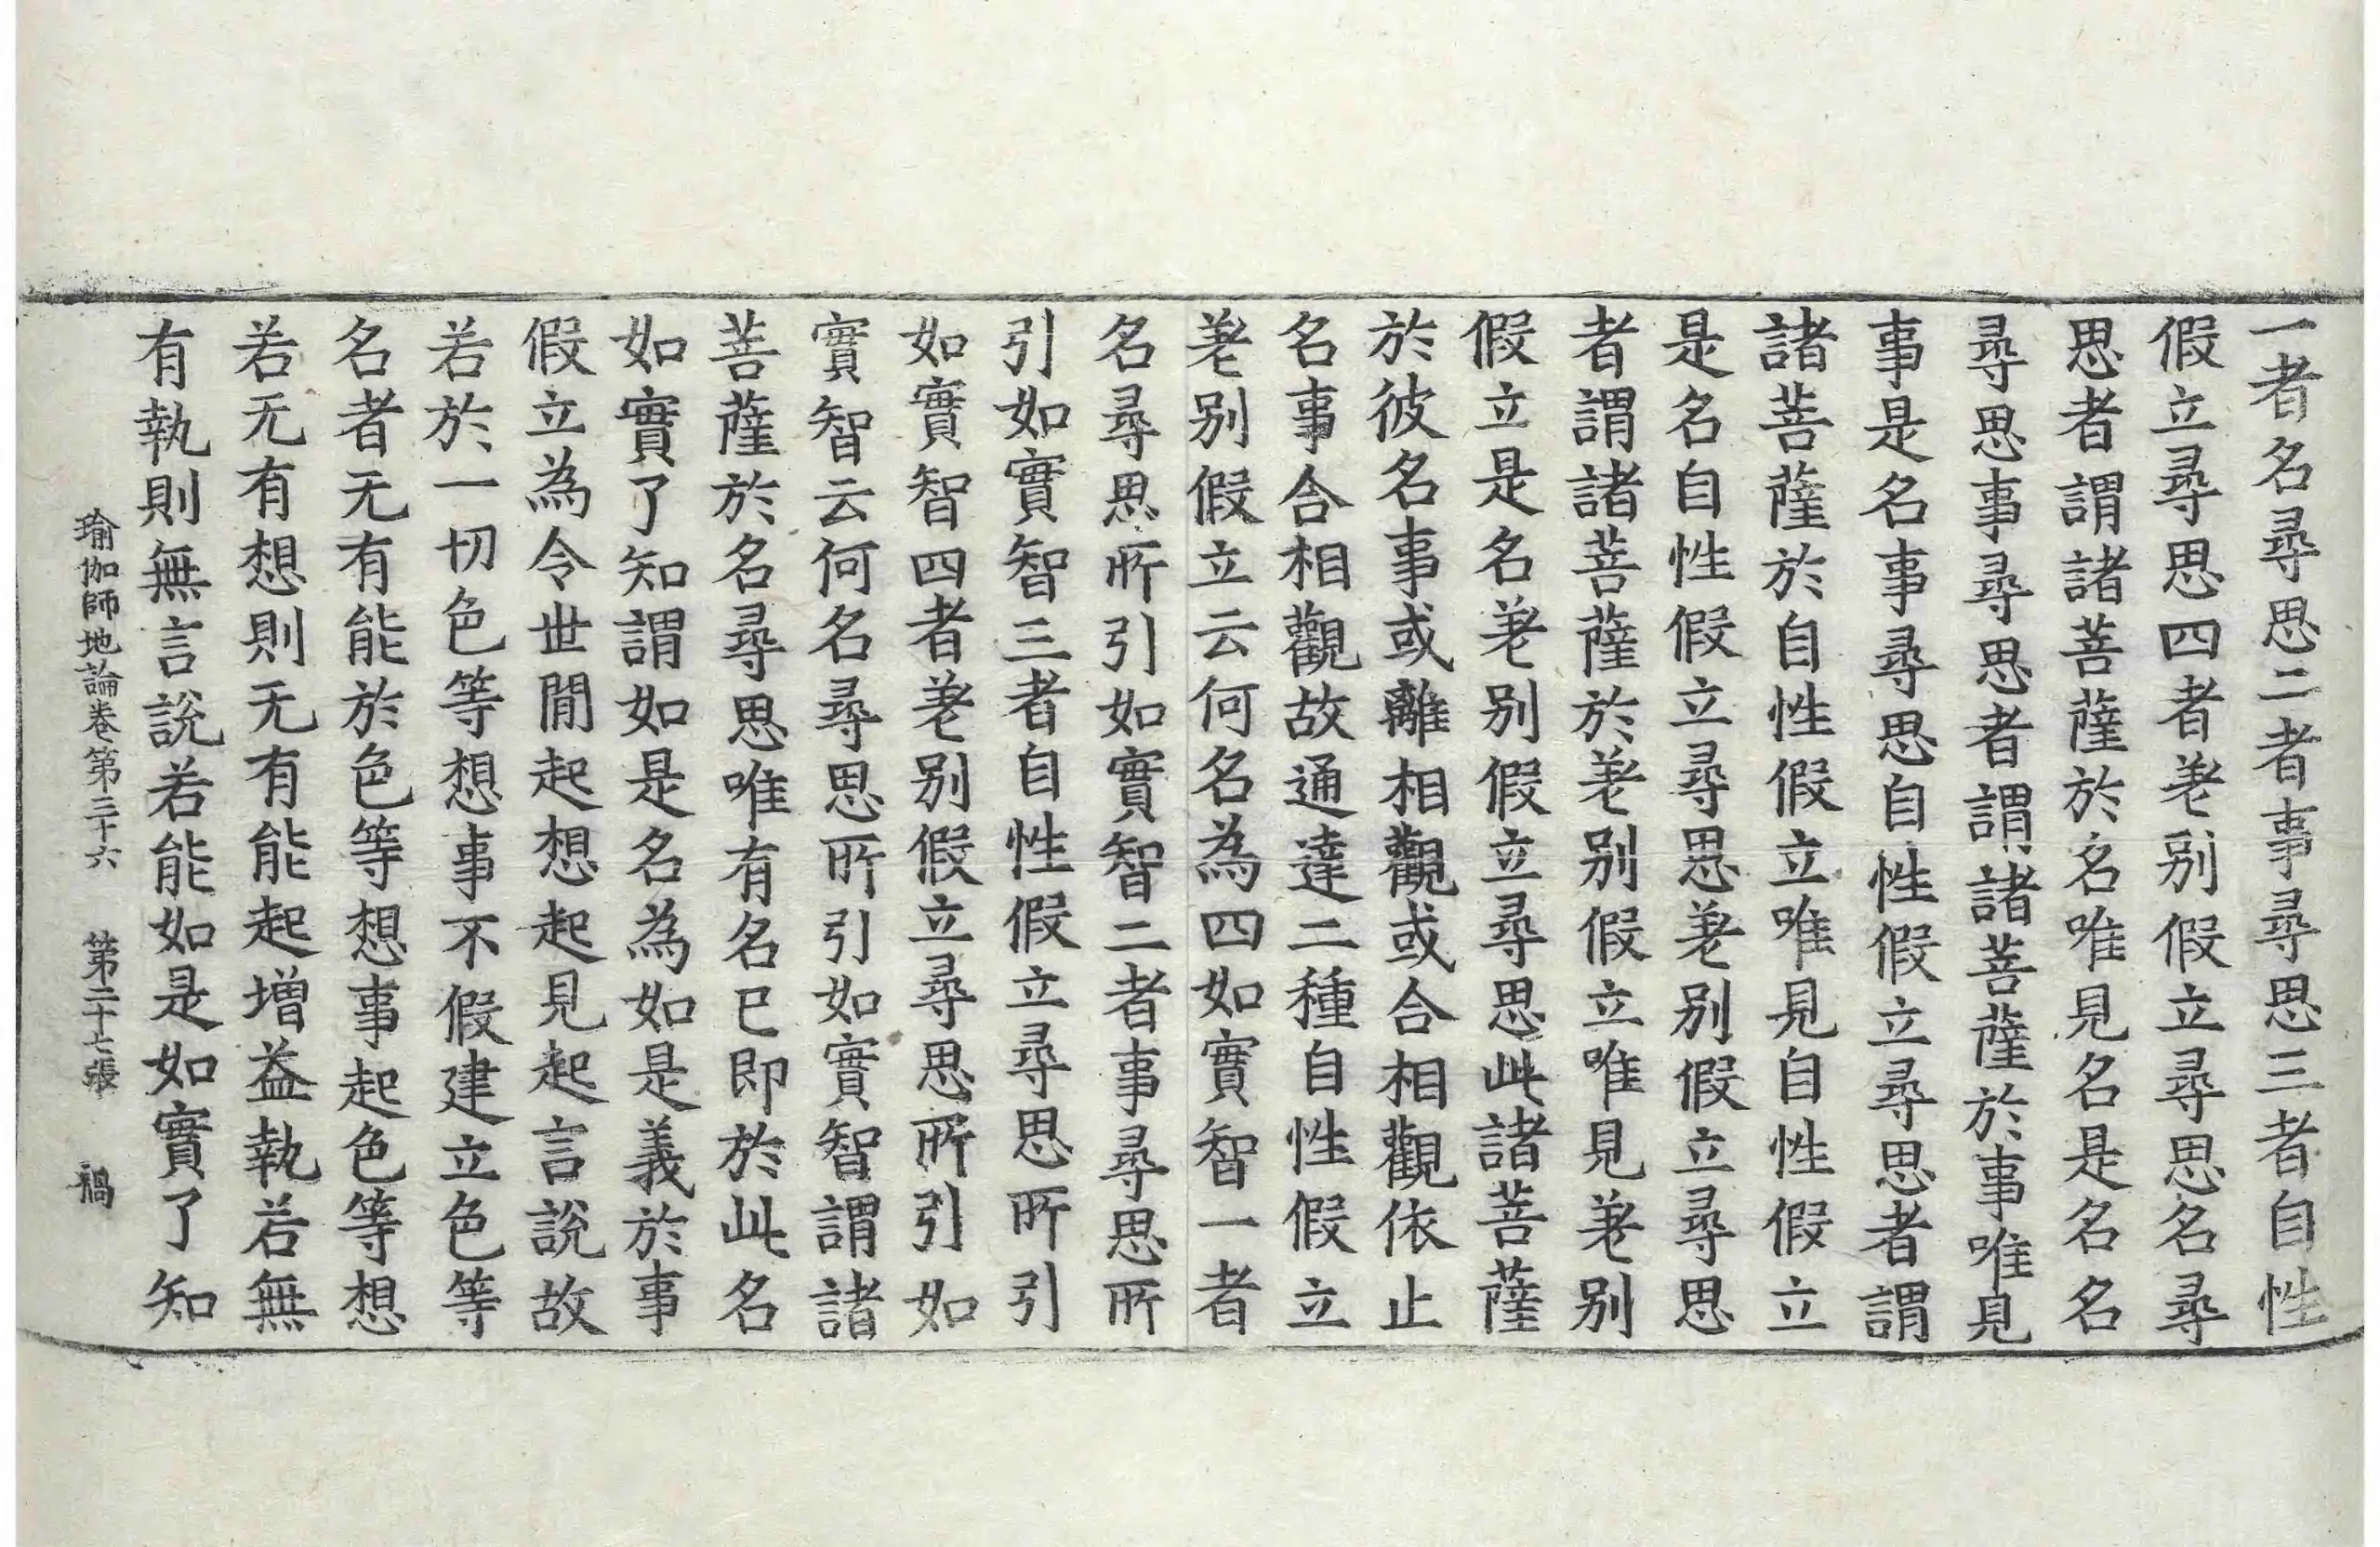 一者名尋思二者事尋思三者自性
假立尋思四者差別假立尋思名尋
思者謂諸菩薩於名唯見名是名名
尋思事尋思者謂諸菩薩於事唯見
事是名事尋思自性假立尋思者謂
諸菩薩於自性假立唯見自性假立
是名自性假立尋思差別假立尋思
者謂諸菩薩於差別假立唯見差別
假立是名差別假立尋思此諸菩薩
於彼名事或離相觀或合相觀依止
名事合相觀故通達二種自性假立
差別假立云何名為四如實智一者
名尋思所引如實智二者事尋思所
引如實智三者自性假立尋思所引
如實智四者差別假立尋思所引如
實智云何名尋思所引如實智謂諸
菩薩於名尋思唯有名已即於此名
如實了知謂如是名為如是義於事
假立為令世間起想起見起言說故
若於一切色等想事不假建立色等
名者无有能於色等想事起色等想
若无有想則无有能起增益執若無
有執則無言說若能如是如實了知
瑜伽師地論卷第三十六 第二十七張 禍